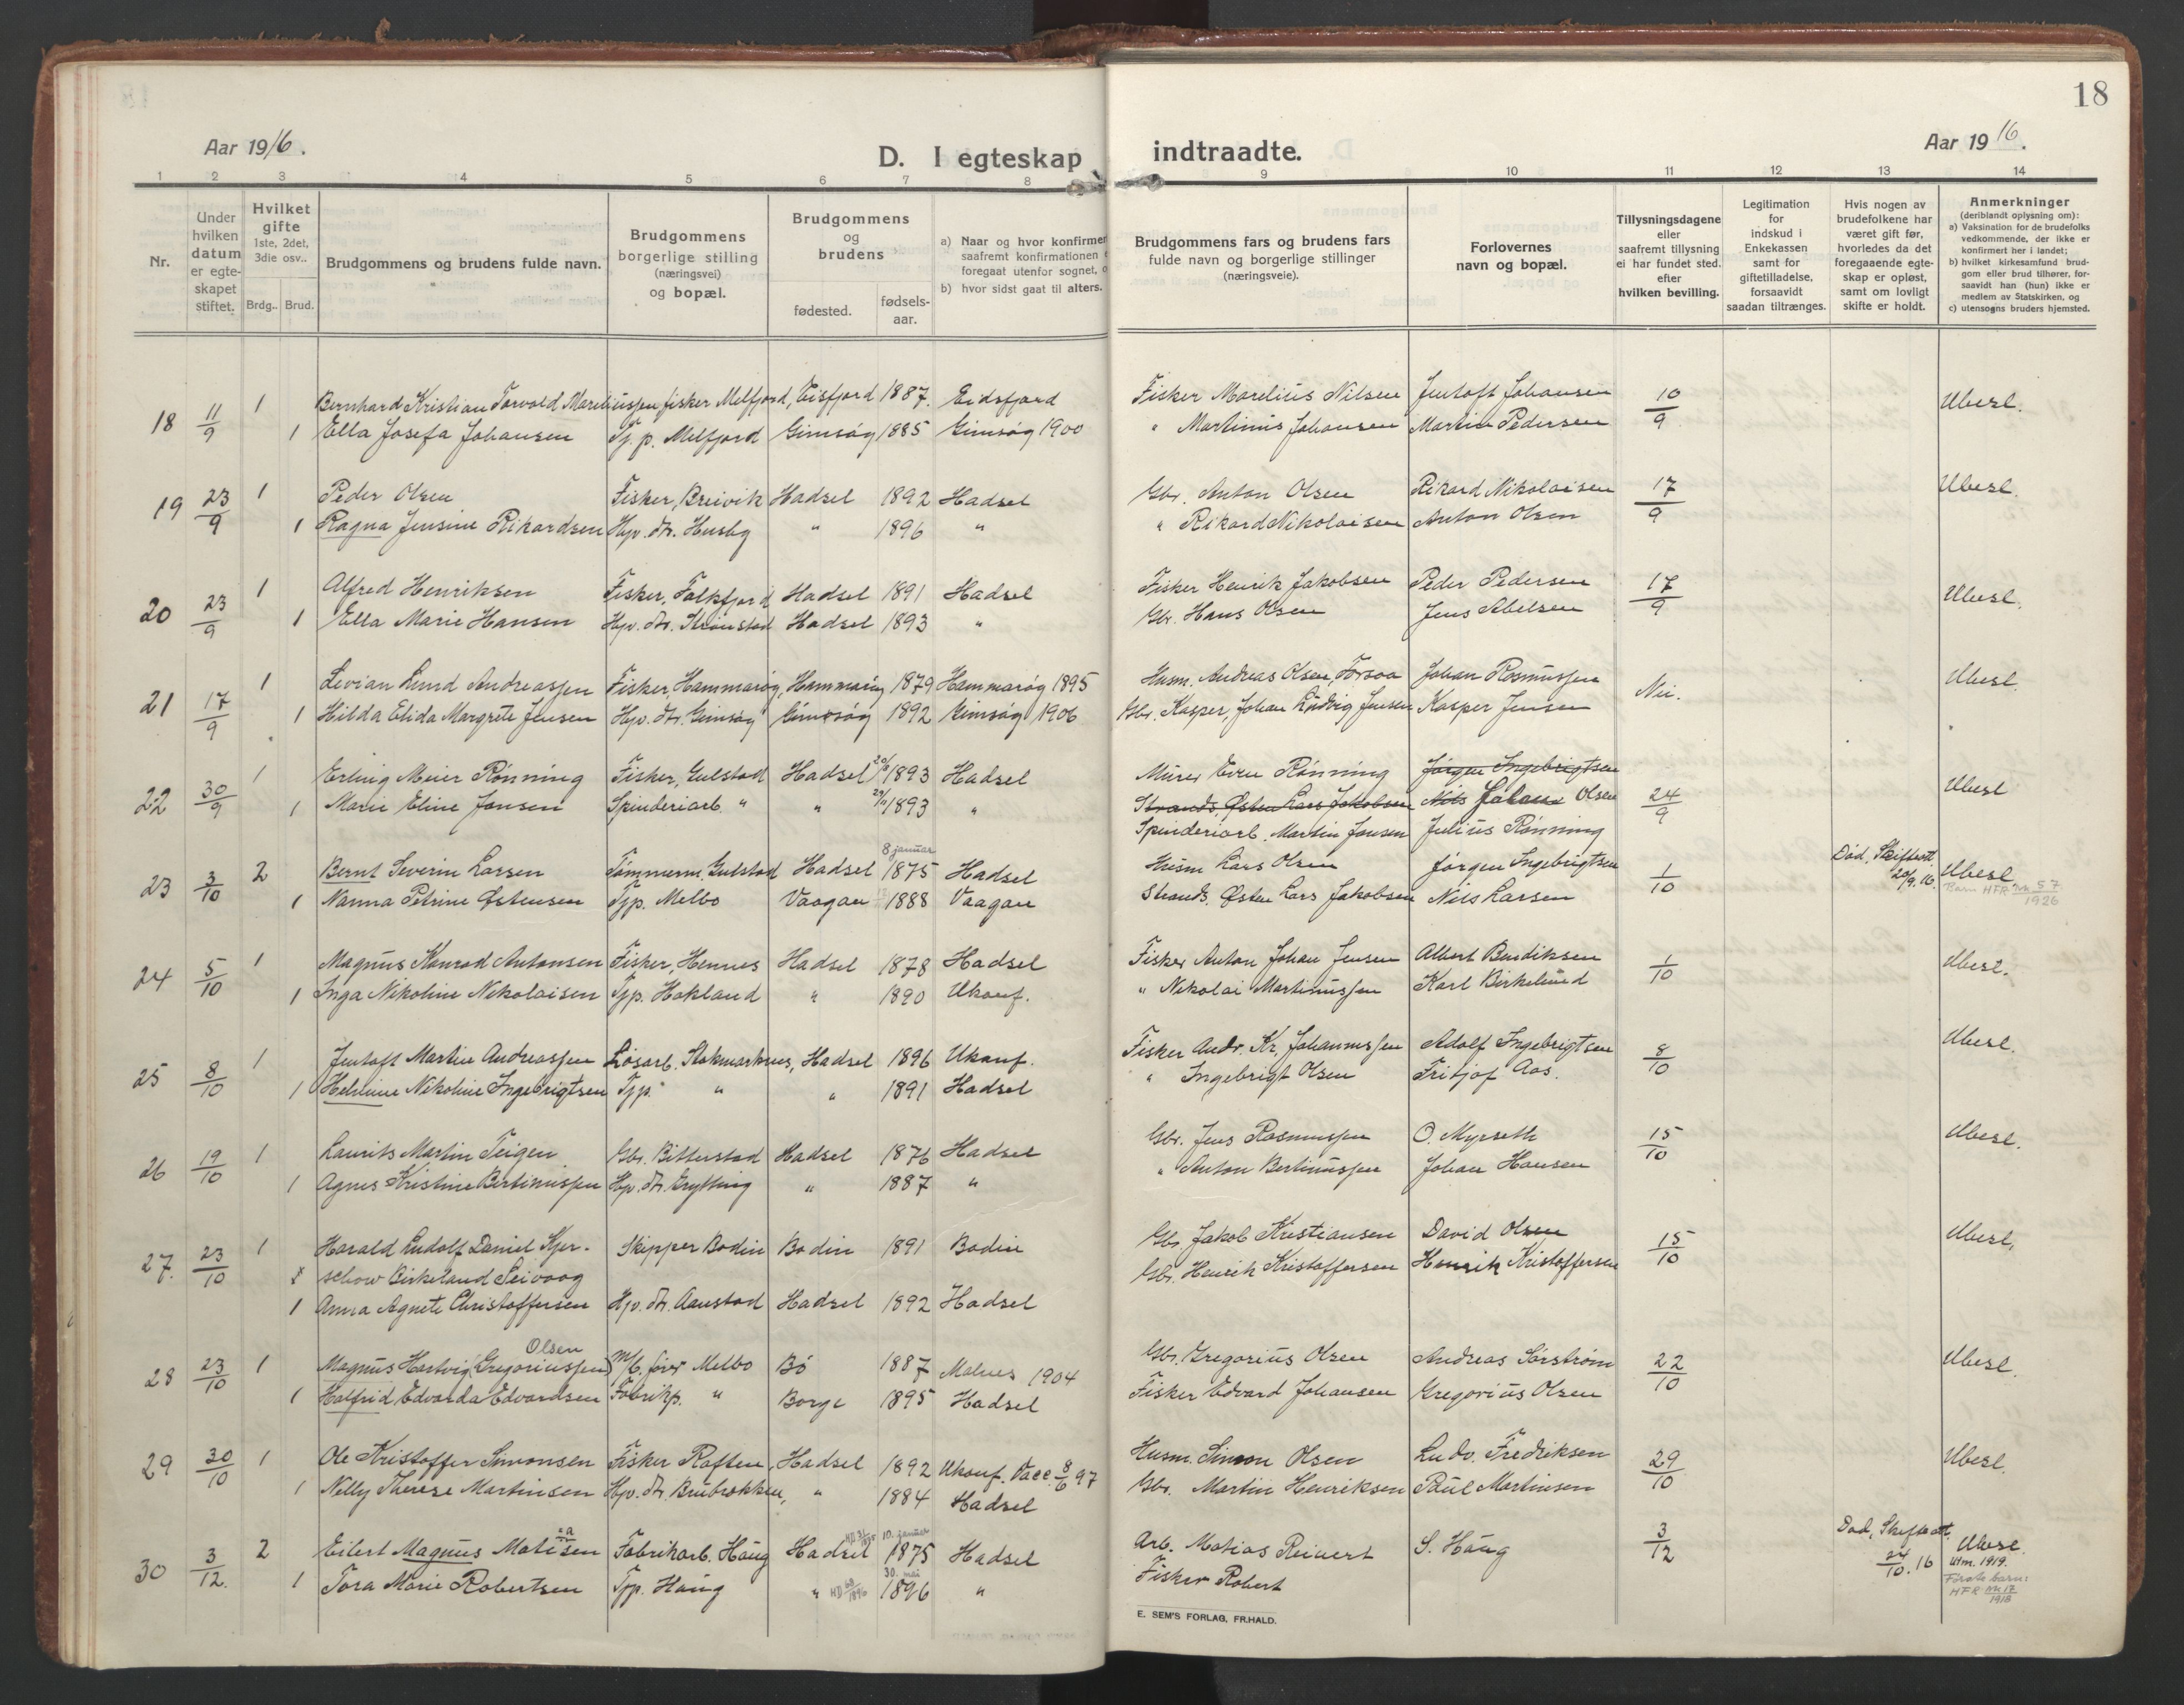 18
Aar 1916.
D. I egteskap indtraadte.
Aar 1916.
1 2 3 4 5 6 7 8 9 10 11 12 13 14
Nr.
Under hvilken datum er egte-skapet stiftet.
Hvilket gifte 1ste, 2det, 3die osv..
Brdg.. Brud.
Brudgommens og brudens fulde navn.
Brudgommens borgerlige stilling (næringsvei) og bopæl.
Brudgommens og brudens
fødested. fødsels-aar.
a) Naar og hvor konfirmer
saafremt konfirmationen
foregaat utenfor sognet, o
b) hvor sidst gaat til alters.
Brudgommens fars og brudens fars
fulde navn og borgerlige stillinger
(næringsveie).
Forlovernes
navn og bopæl.
Tillysningsdagene
eller
saafremt tillysning
ei har fundet sted.
efter
hvilken bevilling.
Legitimation
for
indskud i
Enkekassen
samt for
giftetilladelse,
forsaavidt
saadan tiltrænges.
Hvis nogen av
brudefolkene har
været gift før,
hvorledes da det
foregaaende egte-
skap er opløst,
samt om lovligt
skifte er holdt.
Anmerkninger
(deriblandt oplysning om):
a) Vaksination for de brudefolks
vedkommende, der ikke er
konfirmert her i landet;
b) hvilket kirkesamfund brud-
gom eller brud tilhører, for-
saavidt han (hun) ikke er
medlem av Statskirken, og
c) utensogns bruders hjemsted.
18 11/9 1 Bernhard Kristian Torvald Mareliussen fisker Melfjord, Eisfjord 1887. Eidsfjord Fisker Marelius Nilsen Jentoft Johansen 10/9 Ubesl.
1 Ella Josefa Johansen Tj. p. Melfjord Gimsøy 1885 Gimsøy 1900 " Martinus Johansen Martin Pedersen
19 23/9 1 Peder Olsen Fisker, Breivik Hadsel 1892 Hadsel Gbr. Anton Olsen Rikard Nikolaisen 17/9 Ubesl.
1 Ragna Jensine Rikardsen Hjv. dtr. Husby " 1896 " " Rikard Nikolaisen Anton Olsen
20 23/9 1 Alfred Henriksen Fisker, Falkfjord Hadsel 1891 Hadsel Fisker Henrik Jakobsen Peder Pedersen 17/9 Ubesl.
1 Ella Marie Hansen Hjv. dtr. Strønstad Hadsel 1893 " Gbr. Hans Olsen Jens Abelsen
21 17/9 1 Levian Lund Andreassen Fisker, Hammarøy, Hammarøy 1879 Hammarøy 1895 Husm. Andreas Olsen, Torsoa Johan Rasmussen Nei. Ubesl
1 Hilda Elida Margrete Jensen Hjv. dtr. Gimsøy Gimsøy 1892 Gimsøy 1906 Gbr. Kasper, Johan Ludvig Jensen Kasper Jensen
22 30/9 1 Erling Meier Rønning Fisker, Gulstad Hadsel 1893 Hadsel Murer Even Rønning Jørgen Ingebrigtsen 24/9 Ubesl
1 Marie Eline Jensen Spinderiarb. " " 1893 " Strands. Østen Lars Jakobsen Nils Johan Olsen
Spinderiarb. Martin Jensen Julius Rønning
23 3/10 2 Bernt Severin Larsen Tømmerm. Gulstad Hadsel 8 januar 1875 Hadsel Husm Lars Olsen Jørgen Ingebrigtsen 1/10 Død, Skifteatt. 20/9.16. Ubesl
1 Nanna Petrine Østensen Tjp. Melbo Vaagan 1888 Vaagan Strands. Østen Lars Jakobsen Nils Larsen Barn HFR nr 57 1926
24 5/10 1 Magnus Konrad Antonsen Fisker, Hennes Hadsel 1878 Hadsel Fisker Anton Johan Jensen Albert Bendiksen 1/10 Ubesl.
1 Inga Nikoline Nikolaisen Tjp. Hokland " 1890 Ukonf. " Nikolai Martinussen Karl Birkelund
25 8/10 1 Jentoft Martin Andreassen Løsarb. Stokmarknes, Hadsel 1896 Ukonf. Fisker Andr. Kr. Johannessen Adolf Ingebrigtsen 8/10 Ubesl.
1 Helmine Nikoline Ingebrigtsen Tjp. " " 1891 Hadsel " Ingebrigt Olsen Fritjof Aas.
26 19/10 1 Laurits Martin Teigen Gbr. Bitterstad Hadsel 1876 Hadsel Gbr. Jens Rasmussen O. Myrseth 15/10 Ubesl.
1 Agnes Kristine Bertinussen Hjv. dtr. Grytting " 1887 " " Anton Bertinussen Johan Hansen
27. 23/10 1 Harald Ludolf Daniel Kjer- Skipper Bodin Bodin 1891 Bodin Gbr Jakob Kristiansen David Olsen 15/10 Ubesl.
schow Birkeland Seivaag Gbr. Henrik Kristoffersen Henrik Kristoffersen
1 Anna Agnete Christoffersen Hjv. dtr. Aanstad Hadsel 1892 Hadsel
28 23/10 1 Magnus Hartvig (Gregoriussen) Olsen M/b. fører Melbo Bø 1887 Malnes 1904 Gbr. Gregorius Olsen Andreas Sørstrøm 22/10 Ubesl.
1 Halfrid Edvarda Edvardsen Fabrikp. " Borge 1895 Hadsel Fisker Edvard Johansen Gregorius Olsen
29 30/10 1 Ole Kristoffer Simonsen Fisker Raften, Hadsel 1892 Ukonf. Vacc. 8/6 97 Husm. Simon Olsen Ludv. Fredriksen 29/10 Ubesl.
1 Nelly Therese Martinsen Hjv. dtr. Brubrækken, " 1884 Hadsel Gbr. Martin Henriksen Paul Martinsen
30 3/12. 2 Eilert Magnus Matisen Fabrikarb. Haug Hadsel 10. januar 1875 Hadsel Arb. Matias Reinert S. Haug 3/12 Død, Skifteatt. 24/10.16 Ubesl.
1 Tora Marie Robertsen Tjp. Haug " HD 1896 30. mai 1896 " Fisker Robert Utm. 1919.
Første barn:
HFR nr 17 1918
E. SEM'S FORLAG, FR.HALD.